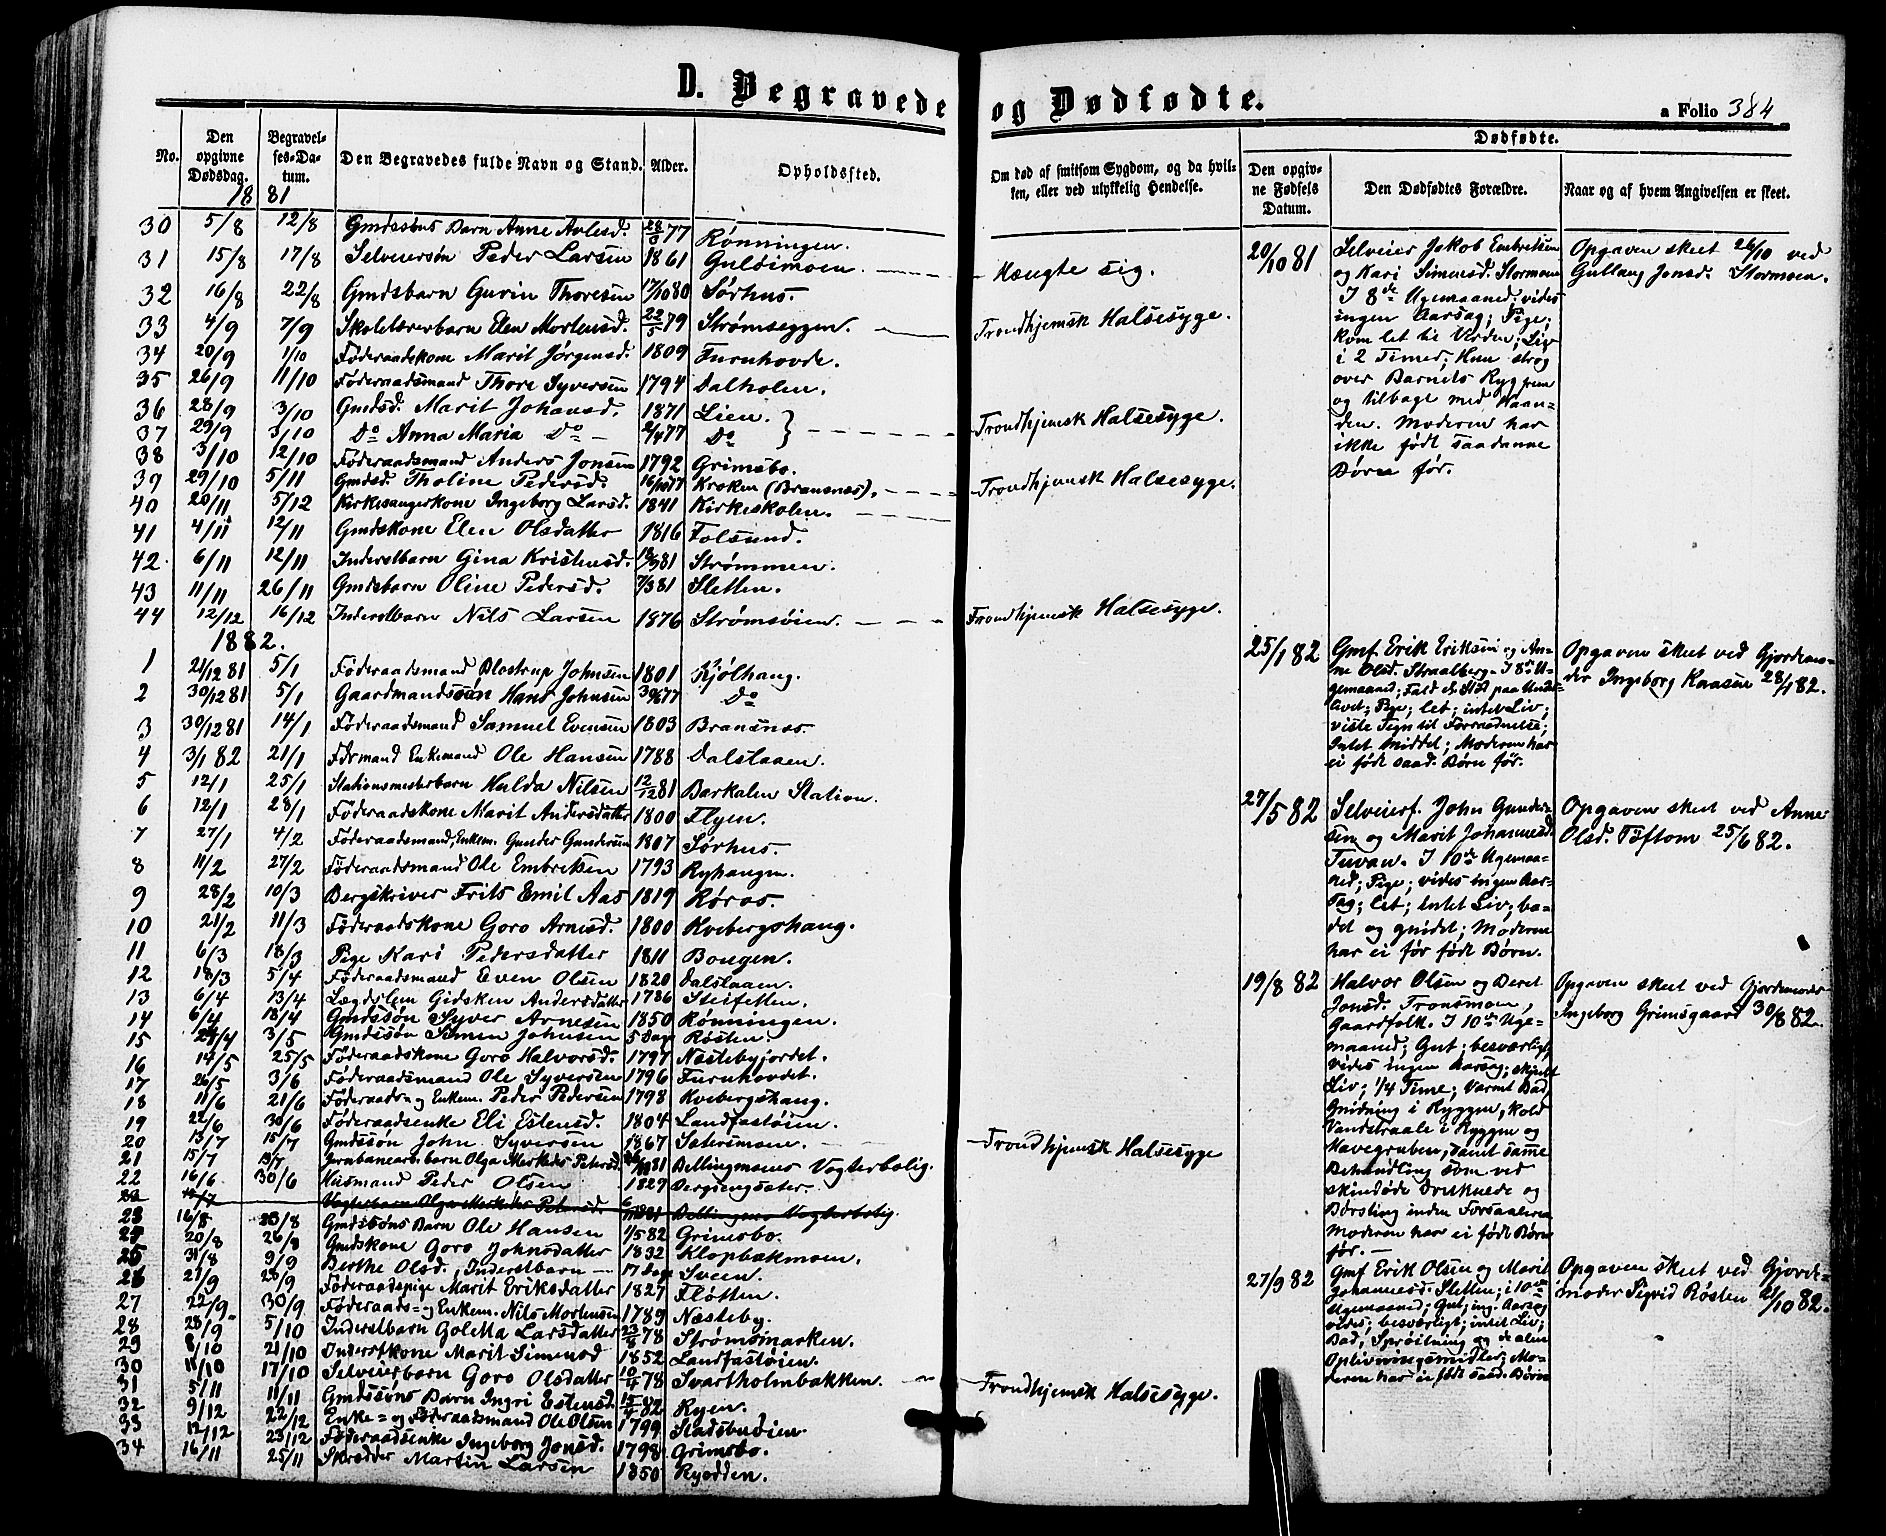 D. Begravede og Dødfødte.
a Folio 384
No. Den opgivne Dødsdag. Begravelses-Datum. Den Begravedes fulde Navn og Stand. Alder. Opholdssted. Om død af smitsom Sygdom, og da hvilken, eller ved ulykkelig Hendelse.
Dødfødte.
Den opgivne Fødsels Datum. Den Dødfødtes Forældre. Naar og af hvem Angivelsen er skeet.
1881
30 5/8 12/8 Gmdssøns Barn Anne Avlesd. 77 Rønningen.
31 15/8 17/8 Selveiersøn Peder Larsen 1861 Guldimoen. Hængte sig.
32 16/8 22/8 Gmdsbarn Gurin Thoresen 17/10 80 Sørhus.
33 4/9 7/9 Skolelærerbarn Elen Mortensd. 22/5 79 Strømseggen. Trondhjemsk Halsesyge.
34 20/9 1/10 Føderaadskone Marit Jørgensd. 1809 Furuhovde.
35 26/9 11/10 Føderaadsmand Thore Syversen 1794 Dalholen.
36 28/9 3/10 Gmdsd. Marit Johansd. 1871 Lien. }
37 29/9 3/10 Do Anna Maria Do 2/4 77 Do } Trondhjemsk Halsesyge.
38 3/10 12/10 Føderaadsmand Anders Jonsen 1792 Grimsbo.
39 29/10 5/11 Gmdsd. Tholine Pedersd. 16/10 77 Kroken (Bransnæs). Trondhjemsk Halsesyge.
40 20/11 5/12 Kirkesangerkone Ingeborg Larsd. 1841 Kirkeskolen.
41 4/11 12/11 Gmdskone Elen Olsdatter 1816 Folsund.
42 6/11 12/11 Inderstbarn Gina Kristensd. 18/9 81 Strømmen.
43 11/11 26/11 Gmdsbarn Oline Pedersd. 7/3 81 Sletten.
44 12/12 16/12 Inderstbarn Nils Larsen 1876 Strømsøien. Trondhjemsk Halsesyge.
1882.
1 21/12 81 5/1 Føderaadsmand Olostrup Johnsen 1801 Kjølhaug.
2 30/12 81 5/1 Gaardmandssøn Hans Johnsen 77 Do
3 30/12 81 14/1 Føderaadsmand Samuel Evensen 1803 Bransnæs.
4 3/1 82 21/1 Fdrmand Enkemand Ole Hansen 1788 Dalstaaen.
5 12/1 25/1 Stationsmesterbarn Hulda Nilsen 12/12 81 Barkalen Station.
6 12/1 28/1 Føderaadskone Marit Andersdatter 1800 Flyen.
7 27/1 4/2 Føderaadsmand, Enkem. Gunder Gundersen 1807 Sørhus.
8 11/2 27/2 Føderaadsmand Ole Embretsen 1793 Ryhaugen.
9 28/2 10/3 Bergskriver Frits Emil Aas 1819 Røros.
10 21/2 11/3 Føderaadskone Goro Arnesd. 1800 Kvebergshaug.
11 6/3 18/3 Pige Kari Pedersdatter 1811 Bougen.
12 18/3 5/4 Føderaadsmand Even Olsen 1820 Dalstaaen.
13 6/4 13/4 Lægdslem Gidsken Andersdatter 1786 Steifetten.
14 6/4 18/4 Gmdssøn Syver Arnesen 1850 Rønningen.
15 24/4 3/5 Gmdssøn Simen Johnsen 5 Dage Røsten.
16 14/5 25/5 Føderaadskone Goro Halvorsd. 1797 Næstebyjordet.
17 26/5 3/6 Føderaadsmand Ole Syversen 1796 Furuhovdet.
18 11/6 21/6 Føderaads og Enkem. Peder Pedersen 1798 Kvebergshaug.
19 22/6 30/6 Føderaadsenke Eli Estensd. 1804 Landfastøien.
20 13/7 15/7 Gmdssøn John Syversen 1867 Sætersmoen.
21 15/7 Jernbanearb.barn Olga Merkedes Petersd. 81 Bellingmoens Vogterbolig. Trondhjemsk Halsesyge
22 16/6 30/6 Husmand Peder Olsen 1829 Bergsengsæter.
Vogterbarn Olga Merkedes Petersd. Bellingmo Vogterbolig.
23 16/8 23/8 Gmdssøns Barn Ole Hansen 1/5 82 Grimsbo.
24 20/8 26/8 Gmdskone Goro Johnsdatter 1832 Klopbækmoen.
25 31/8 9/9 Berthe Olsd. Inderstbarn 17 Dage Sveen.
26 21/9 28/9 Føderaadspige Marit Eriksdatter 1827 Fløtten.
27 22/9 30/9 Føderaads- og Enkem. Nils Mortensen 1789 Næsteby.
28 28/9 5/10 Inderstbarn Goletta Larsdatter 23/4 78 Strømsmarken.
29 8/10 21/10 Inderstkone Marit Simensd 1852 Landfastøien.
30 11/10 17/10 Selveierbarn Goro Olsdatter 10/4 78 Svartholmbakken. Trondhjemsk Halsesyge.
31 5/11 11/11 Gmdssøns Barn Ingri Estensd. 15/4 82 Ryen.
32 9/12 22/12 Enke- og Føderaadsmand Ole Olsen 1799 Stadsbudien.
33 12/12 23/12 Føderaadsenke Ingeborg Jonsd. 1798 Grimsbo.
34 16/11 25/11 Skrædder Martin Larsen 1850 Ryodden.
20/10 81 Selveier Jakob Embretsen Opgaven skeet 26/10 ved
og Kari Simensd. Stormoen Gullaug Jonsd. Stormoen.
I 8de Ugemaaned; vides
ingen Aarsag; Pige;
kom let til Verden; Liv
i 2 Timer; Hun strøg
over Barnets Ryg frem
og tilbage med Haan-
den. Moderen har
ikke født saadanne
Børn før.
25/1 82 Gmf. Erik Eriksen og An- Opgaven skeet ved Gjordemo-
ne Olsd. Straalberg. I 8de U- der Ingeborg Kaasen 28/1 82.
gemaaned; Fald el. Stød paa Under-
livet; Pige; let; intet Liv;
viste Tegn til Forraadnelse;
Intet Middel; Moderen har
ei født saad. Børn før.
27/5 82 Selveierf. John Gunder- Opgaven skeet ved Anne
sen og Marit Johannesd. Olsd. Tøftom 25/6 82.
Tuvan. I 10de Ugemaa-
ned; Pige; vides ingen Aar-
sag; let; intet Liv; ba-
det og gnidet; Moderen
har ei før født Børn.
19/8 82 Halvor Olsen og Beret Opgaven skeet ved Gjordemoder
Jonsd. Tronsmoen, Ingeborg Grimsgaard 30/8 82.
Gaardfolk. I 10de Uge-
maaned; Gut; besværligt;
vides ingen Aarsag; skjult
Liv; 1/4 Time; Varmt Bad,
Gnidning i Ryggen, kold
Vandstraale i Ryggen og
Mavegruben, samt samme
Behandling som ved
skindøde Druknede og
Børsting under Fodsaalerne
Moderen har ei født Børn
før.
27/9 82 Gmf. Erik Olsen og Marit Opgaven skeet ved Gjorde-
Johannesd. Sletten; i 10de moder Sigrid Røsten 21/10 82.
Ugemaaned; Gut; ing. Aarsag
vides; besværligt; intet Liv;
Bad, Sprøitning og de alm.
Oplivningsmidler; Mo-
deren har ei født saad. Børn